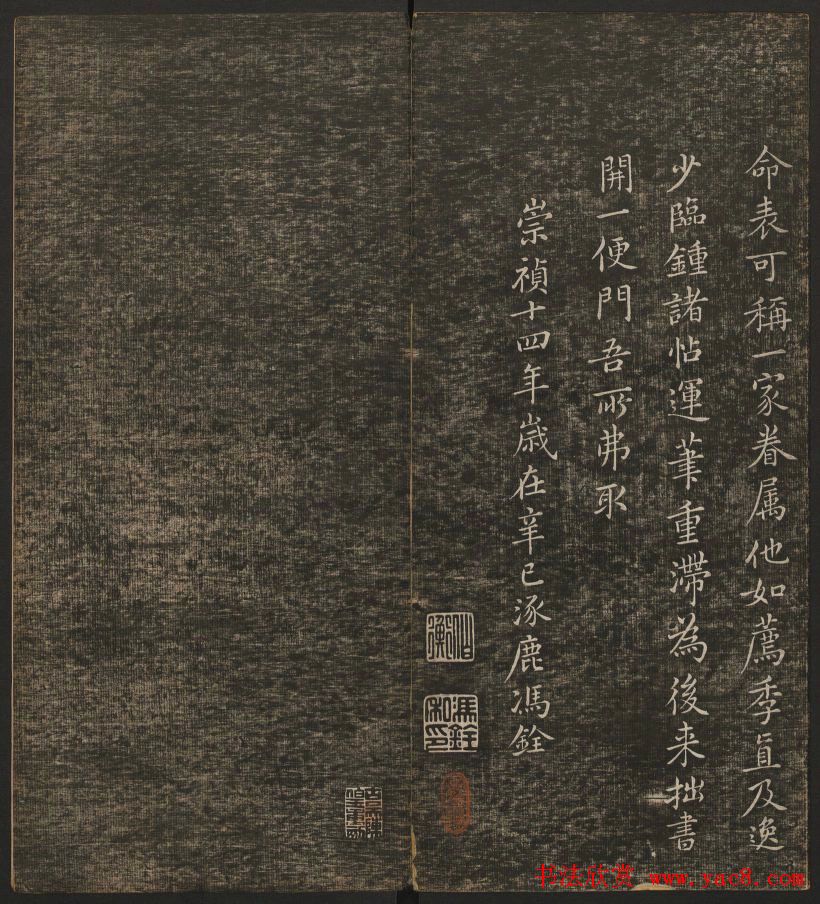 命表可稱一家眷属他如薦季直及逸
少臨鍾諸帖運筆重滯為後来拙書
開一便門吾所弗取
崇禎十四年歲在辛巳涿鹿馮銓
伯衡
馮銓私印
书法欣赏 www.yac8.com